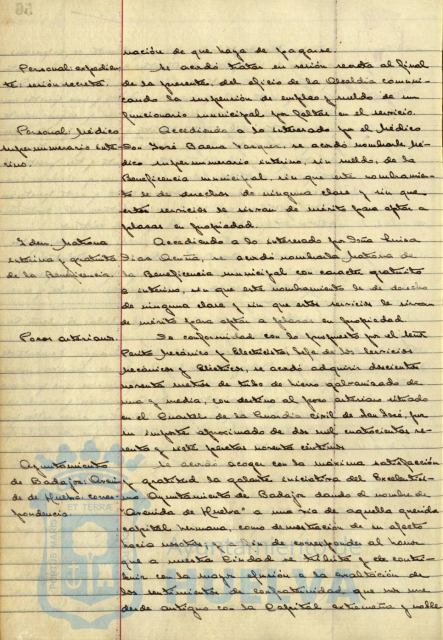 nación de que haya de pagarse.
Personal: expedien
te: sesión secreta.
Se acordó tratar en sesión secreta al final
de la presente, del oficio de la Alcaldía comuni-
cando la suspensión de empleo y sueldo de un
funcionario municipal por faltas en el servicio.
Personal: Médico
supernumerario inte-
rino.
Accediendo a lo interesado por el Médico
Don José Baena Vazquez, se acordó nombrarle Mé-
dico supernumerario interino, sin sueldo, de la
Beneficencia municipal, sin que este nombramien-
to le de derechos de ninguna clase y sin que
estos servicios le sirvan de mérito para optar a
plazas en propiedad.
Idem. Matrona
interina y gratuita
de la Beneficencia.
Accediendo a lo interesado por Doña Luisa
Díaz Acuña, se acordó nombrarla Matrona de
la Beneficencia municipal con carácter gratuito
e interino, sin que este nombramiento le dé derecho
de ninguna clase y sin que estos servicios le sirvan
de mérito para optar a plazas en propiedad.
Pozos artesianos.
De conformidad con lo propuesto por el señor
Perito Mecánico y Electricista, Jefe de los Servicios
Mecánicos y Eléctricos, se acordó adquirir doscientos
noventa metros de tubo de hierro galvanizado de
una y media, con destino al pozo artesiano situado
en el Cuartel de la Guardia civil de San José, por
un importe aproximado de dos mil cuatrocientas se-
senta y siete pesetas noventa céntimos.
Ayuntamiento
de Badajoz: Aveni-
da de Huelva: corres-
pondencia.
Se acordó acoger con la máxima satisfacción
y gratitud la galante iniciativa del Excelentísi-
mo Ayuntamiento de Badajoz dando el nombre de
"Avenida de Huelva" a una vía de aquella querida
capital hermana, como demostración de su afecto
hacia nosotros. A fin de corresponder al honor
que a nuestra Ciudad se tributa y de contri-
buir con la mayor efusión a la exaltación de
los sentimientos de confraternidad que nos une
desde antiguo con la Capital extremeña y noble